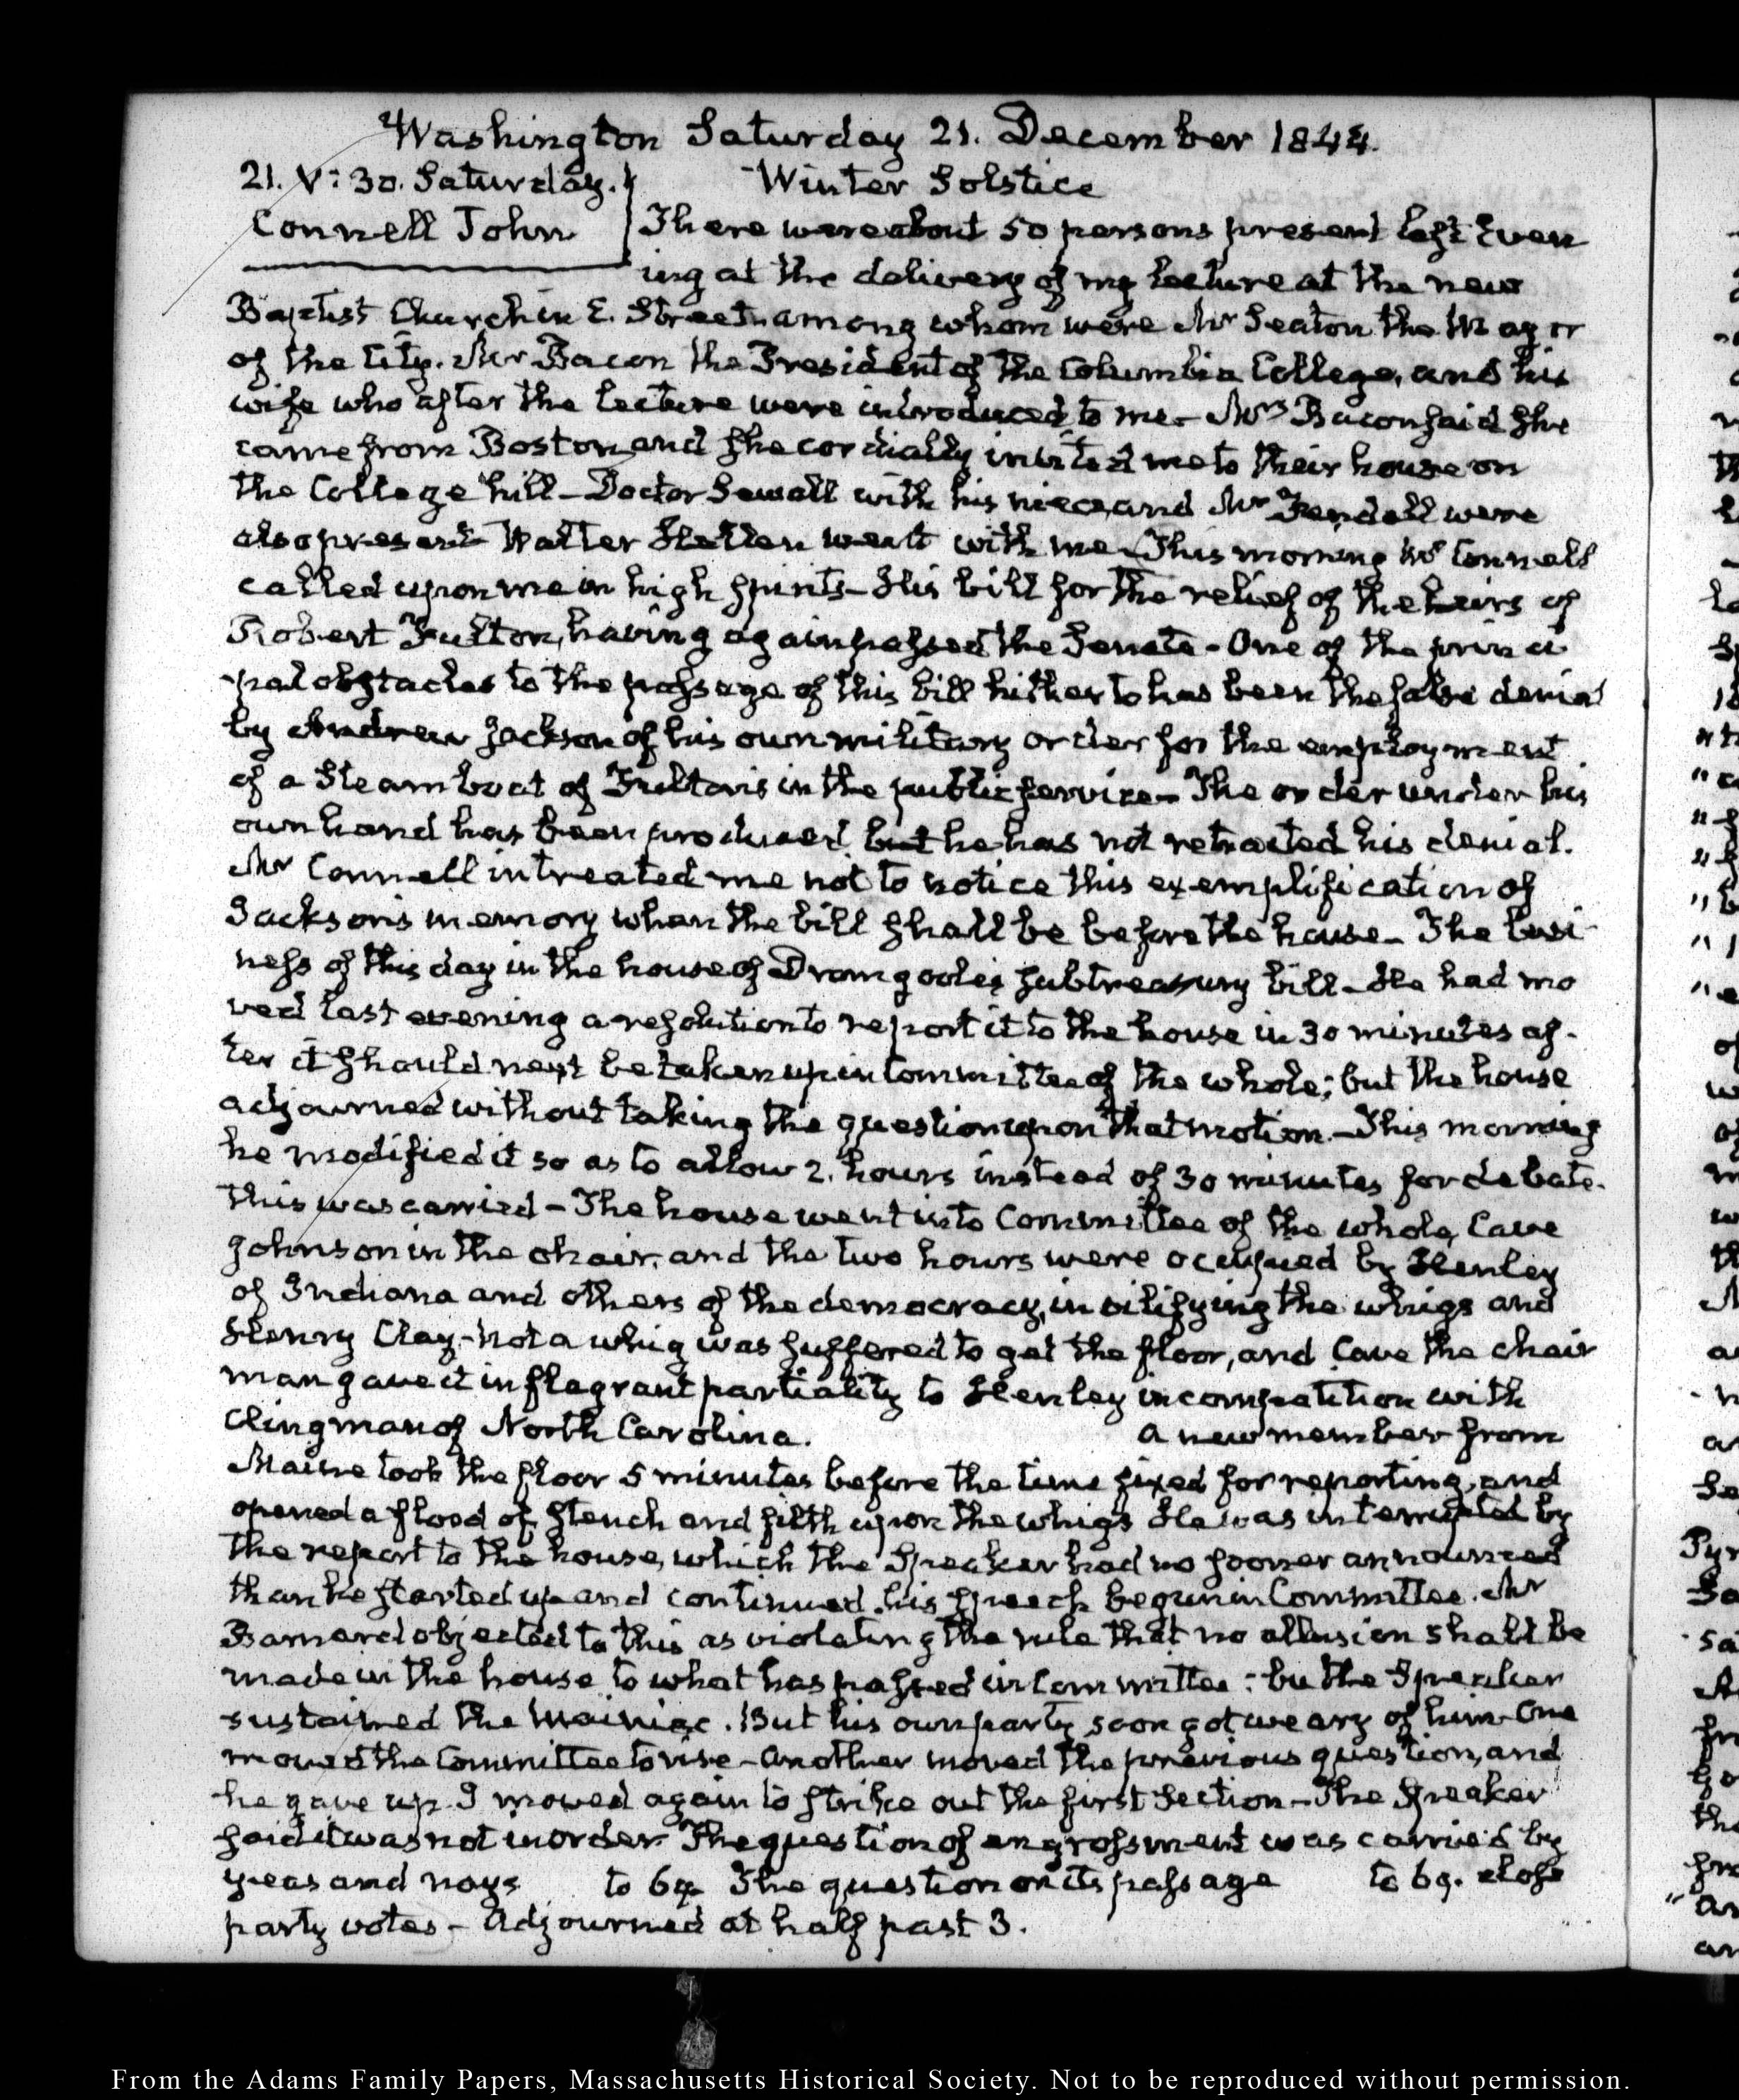 Washington Saturday 21. December 1844.
21. V: 30. Saturday. Winter Solstice
Connell John There were about 50 persons present last Even
ing at the delivery of my lecture at the new
Baptist Church in E. Street. among whom were Mr Seaton the Mayor
of the City. Mr Bacon the President of the Columbia College, and his
wife who after the lecture were introduced to me - Mrs Bacon said she
came from Boston and she cordially invited me to their house on
the College hill - Doctor Sewall with his niece, and Mr Fendall were
also present Walter Hellen went with me - This morning Mr Connell
called upon me in high spirits - His bill for the relief of the heirs of
Robert Fulton, having again passed the Senate - One of the princi
pal obstacles to the passage of this bill hitherto has been the false denial
by Andrew Jackson of his own military order for the employment
of a Steam boat of Fulton's in the public service - The order under his
own hand has been produced but he has not retracted his denial.
Mr Connell intreated me not to notice this exemplification of
Jackson's memory when the bill shall be before the house - The busi
ness of this day in the house of Dromgoole's subtreasury bill - He had mo
ved last evening a resolution to report it to the house in 30 minutes af-
ter it should next be taken up in Committee of the whole; but the house
adjourned without taking the question upon that motion - This morning
he modified it so as to allow 2. hours instead of 30 minutes for debate.
this was carried - The house went into Committee of the whole, Cave
Johnson in the chair. and the two hours were occupied by Henley
of Indiana and others of the democracy, in vilifying the whigs and
Henry Clay - not a whig was suffered to get the floor, and Cave the chair
man gave it in flagrant partiality to Henley in competition with
Clingman of North Carolina. a new member from
Maine took the floor 5 minutes before the time fixed for reporting, and
opened a flood of stench and filth upon the whigs He was interrupted by
the report to the house, which the Speaker had no sooner announced
than he started up and continued his speech begun in Committee. Mr
Barnard objected to this as violating the rule that no allusion shall be
made in the house to what has passed in Committee: bu the Speaker
sustained the Mainiac. But his own party soon got weary of him - One
moved the Committee to rise - another moved the previous question, and
he gave up. I moved again to strike out the first Section - The Speaker
said it was not in order. The question of engrossment was carried by
yeas and nays to 64 The question on its passage to 69. close
party votes - Adjourned at half past 3.
From the Adams Family Papers, Massachusetts Historical Society. Not to be reproduced without permission.